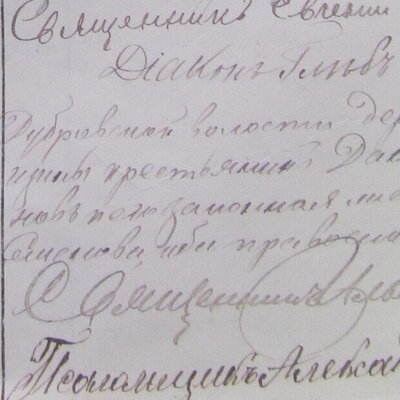 Священникъ Евгений
Діаконъ Глѣбъ
Дубровской волости дер
крестьянинъ Дан
новъ и его законная
Семенова, оба правосла
Священникъ Але
Псаломщикъ Алекса